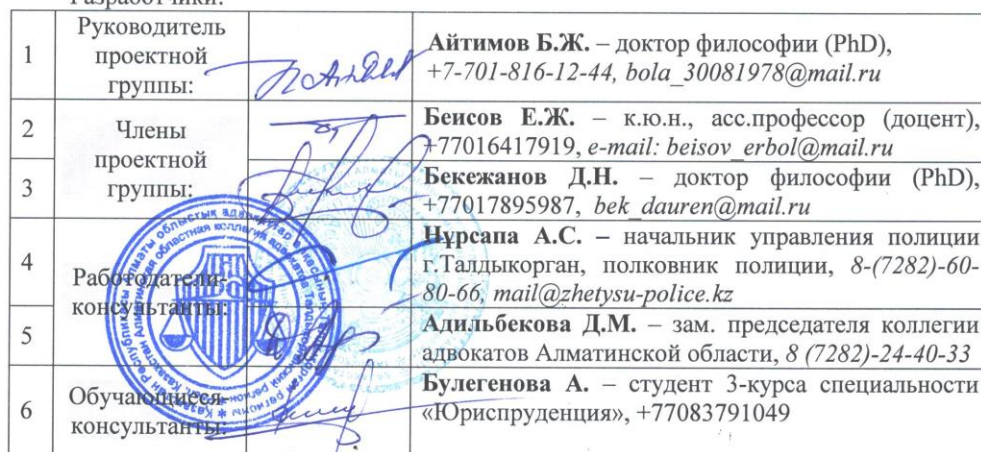 Разработчики:
1
Руководитель
проектной
группы:
Айтимов Б.Ж. – доктор философии (PhD),
+7-701-816-12-44, bola_30081978@mail.ru
2
Члены
проектной
группы:
Беисов Е.Ж. – к.ю.н., асс.профессор (доцент),
+77016417919, e-mail: beisov_erbol@mail.ru
3
Бекежанов Д.Н. – доктор философии (PhD),
+77017895987, bek_dauren@mail.ru
4
Работодатели-
консультанты:
Нұрсапа А.С. – начальник управления полиции
г.Талдыкорган, полковник полиции, 8-(7282)-60-
80-66, mail@zhetysu-police.kz
5
Адильбекова Д.М. – зам. председателя коллегии
адвокатов Алматинской области, 8 (7282)-24-40-33
6
Обучающиеся-
консультанты:
Булегенова А. – студент 3-курса специальности
«Юриспруденция», +77083791049